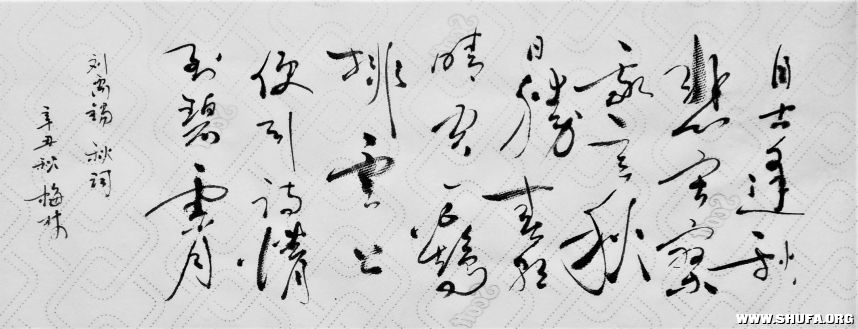 自古逢秋
悲寂寥
我言秋
日勝春朝
晴空一鶴
排雲上
便引诗情
到碧霄
刘禹锡 秋词
辛丑秋 梅
WWW.SHUFA.ORG